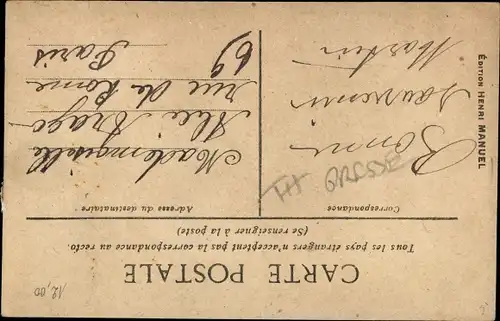 CARTE POSTALE
Tous les pays étrangers n'acceptent pas la correspondance au recto.
(Se renseigner à la poste)
Correspondance
Adresse du destinataire
Bonne
Souvenir
Martin
Mademoiselle
Alice Drago
rue de Rome
69
Paris
ÉDITION HENRI MANUEL
TH GRESSE
12,00